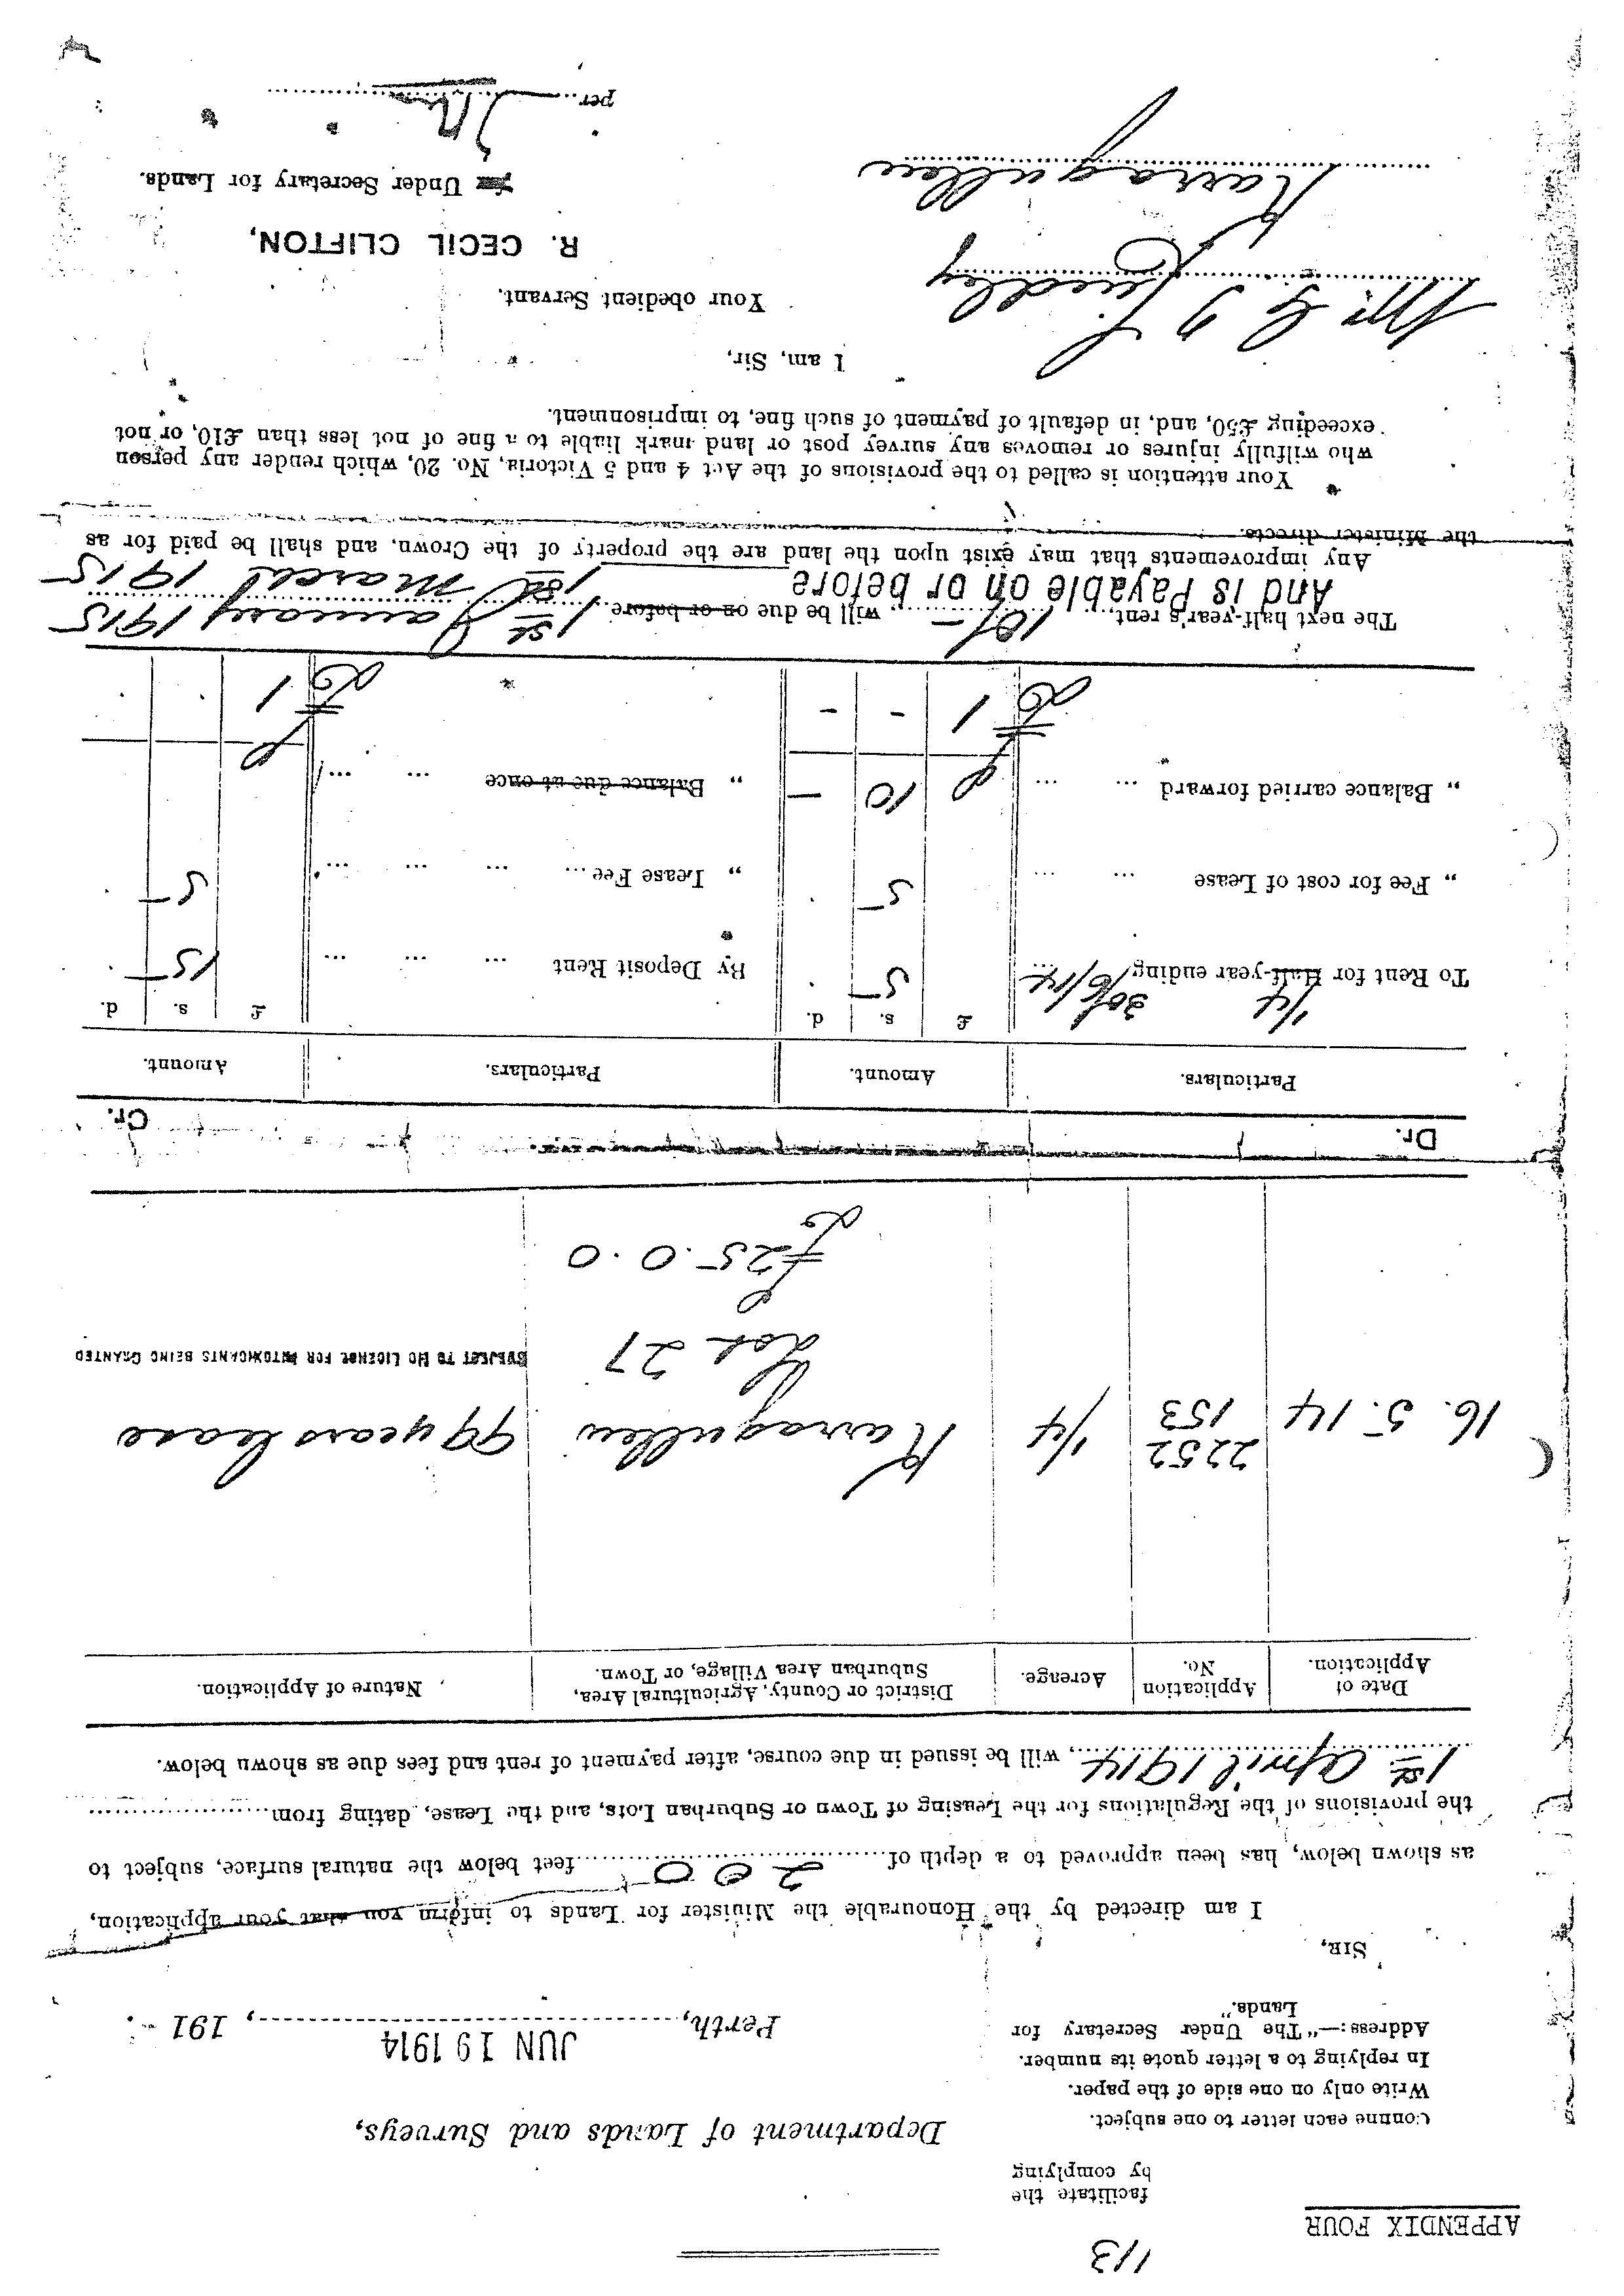 113
APPENDIX FOUR
facilitate the
by complying
Confine each letter to one subject.
Write only on one side of the paper.
In replying to a letter quote its number.
Address:—"The Under Secretary for
Lands."
Department of Lands and Surveys,
JUN 19 1914
Perth, ..., 191 .
SIR,
I am directed by the Honourable the Minister for Lands to inform you that your application,
as shown below, has been approved to a depth of 200 feet below the natural surface, subject to
the provisions of the Regulations for the Leasing of Town or Suburban Lots, and the Lease, dating from
1st April 1914, will be issued in due course, after payment of rent and fees due as shown below.
Date of Application. | Application No. | Acreage. | District or County, Agricultural Area, Suburban Area Village, or Town. | Nature of Application.
16.5.14 | 2252 / 153 | 1/4 | Karragullen | 99 years lease
Lot 27
SUBJECT TO NO LICENSE FOR INTOXICANTS BEING GRANTED
£25.0.0
Dr. Cr.
Particulars. | Amount. | Particulars. | Amount.
£ s. d. £ s. d.
1/4 30/6/14
To Rent for Half-year ending ... 5 - By Deposit Rent ... 15 -
„ Fee for cost of Lease ... 5 - „ Lease Fee ... 5 -
„ Balance carried forward ... 10 - „ Balance due at once ...
£ 1 - - £ 1
The next half-year's rent, 10/- will be due on or before 1st January 1915
And is Payable on or before 1st March 1915
Any improvements that may exist upon the land are the property of the Crown, and shall be paid for as
the Minister directs.
Your attention is called to the provisions of the Act 4 and 5 Victoria, No. 20, which render any person
who wilfully injures or removes any survey post or land mark liable to a fine of not less than £10, or not
exceeding £50, and, in default of payment of such fine, to imprisonment.
I am, Sir,
Your obedient Servant,
Mr. G
R. CECIL CLIFTON,
Karragullen
for Under Secretary for Lands.
per